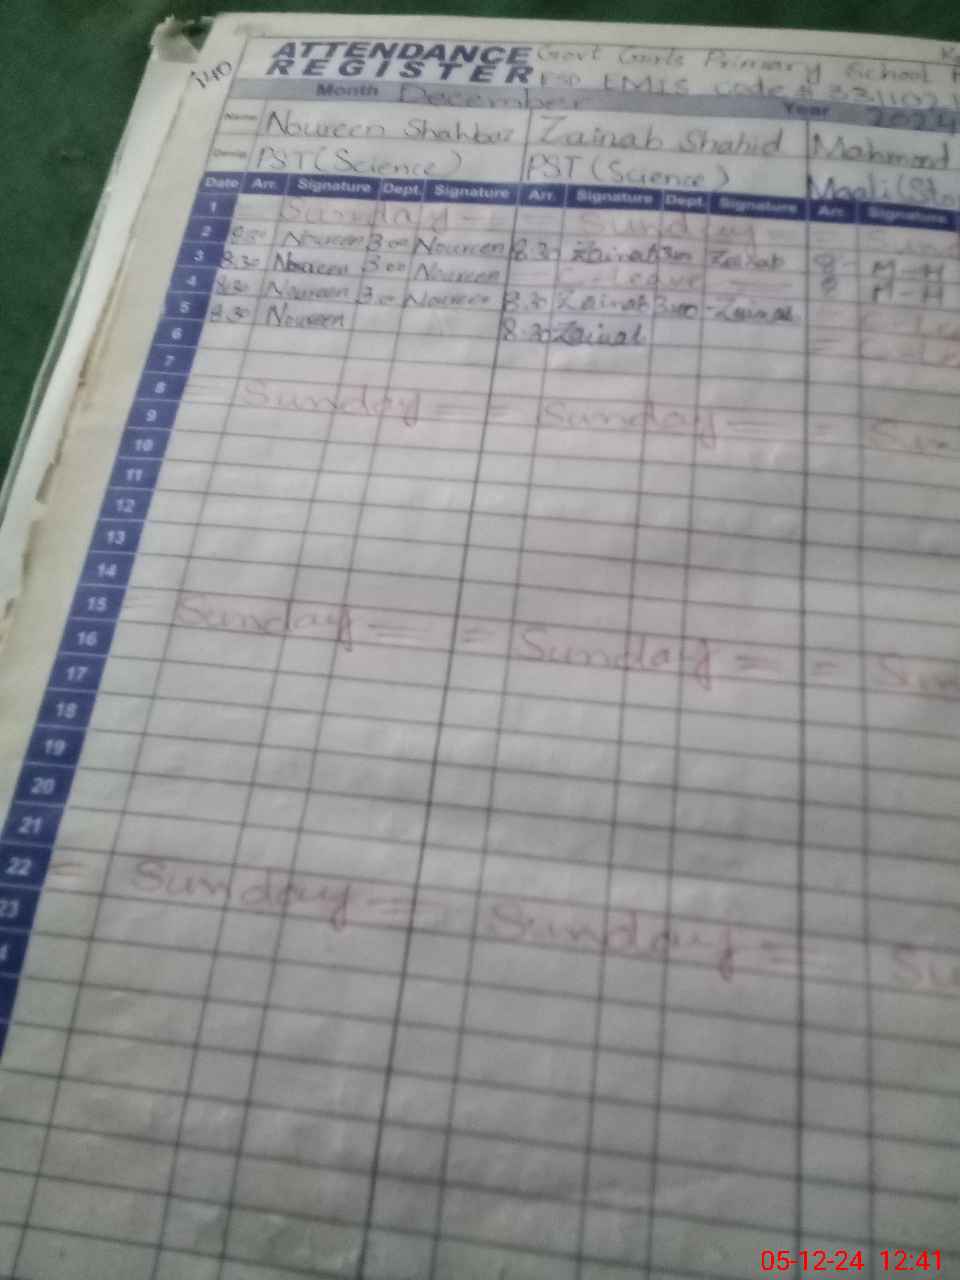 140
ATTENDANCE Govt Girls Primary School
REGISTER EMIS code # 331102
Month December Year 2024
Name Noureen Shahbaz Zainab Shahid Mahmood
PST (Science) PST (Science) Maali
Date Arr. Signature Dept. Signature Arr. Signature Dept. Signature Arr. Signature
1 = Sunday = = Sunday =
2 8:30 Noureen 3:00 Noureen 8.30 Zainab 3:00 Zainab M-M
3 8:30 Noureen 3:00 Noureen C-leave M-M
4 8:30 Noureen 3:00 Noureen 8.30 Zainab 3:00 Zainab
5 8:30 Noureen 8.30 Zainab
6
7
8 = Sunday = = Sunday = = Sun
9
10
11
12
13
14
15 = Sunday = = Sunday = = Sun
16
17
18
19
20
21
22 = Sunday = Sunday = Su
23
4
05-12-24 12:41